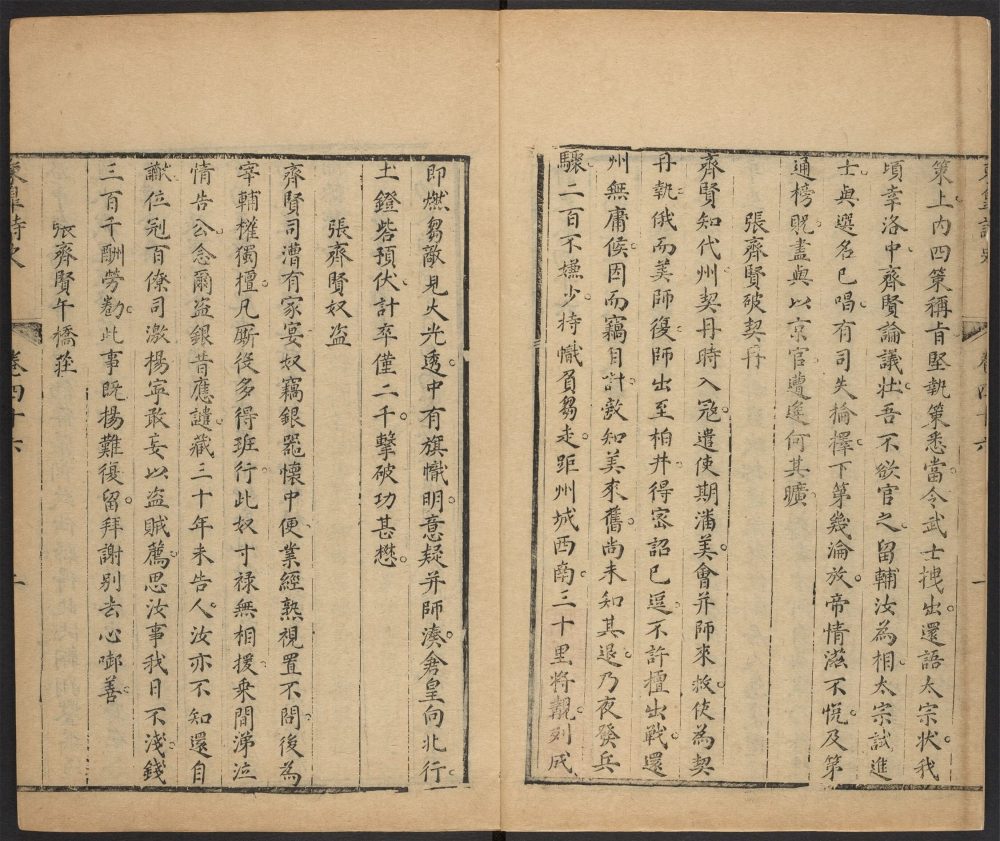 策上內四策稱旨堅執策悉當令武士拽出還語太宗狀我
頃幸洛中齊賢論議壯吾不欲官之留輔汝為相太宗試進
士與選名已唱有司失掄擇下第幾淪放帝情滋不悅及第
通榜既盡與以京官遭逢何其曠
張齊賢破契丹
齊賢知代州契丹時入寇遣使期潘美會并師來救使為契
丹執俄而美師復師出至柏井得密詔已逗不許擅出戰還
州無庸候因而竊自計敵知美來舊尚未知其退乃夜發兵
驟二百不嫌少持幟負芻走距州城西南三十里將觀列戍
卷四十六
一
即燃芻敵見火光透中有旗幟明意疑并師湊倉皇向北行
土鐙砦預伏計卒僅二千擊破功甚懋
張齊賢奴盜
齊賢司漕有家宴奴竊銀器懷中便業經熟視置不問後為
宰輔權獨擅凡廝役多得班行此奴寸祿無相援乘間涕泣
情告公念爾盜銀昔應譴藏三十年未告人汝亦不知還自
讞位冠百僚司激揚寧敢妄以盜賊薦思汝事我日不淺錢
三百千酬勞勸此事既揚難復留拜謝別去心啣善
張齊賢午橋莊
卷四十六
二